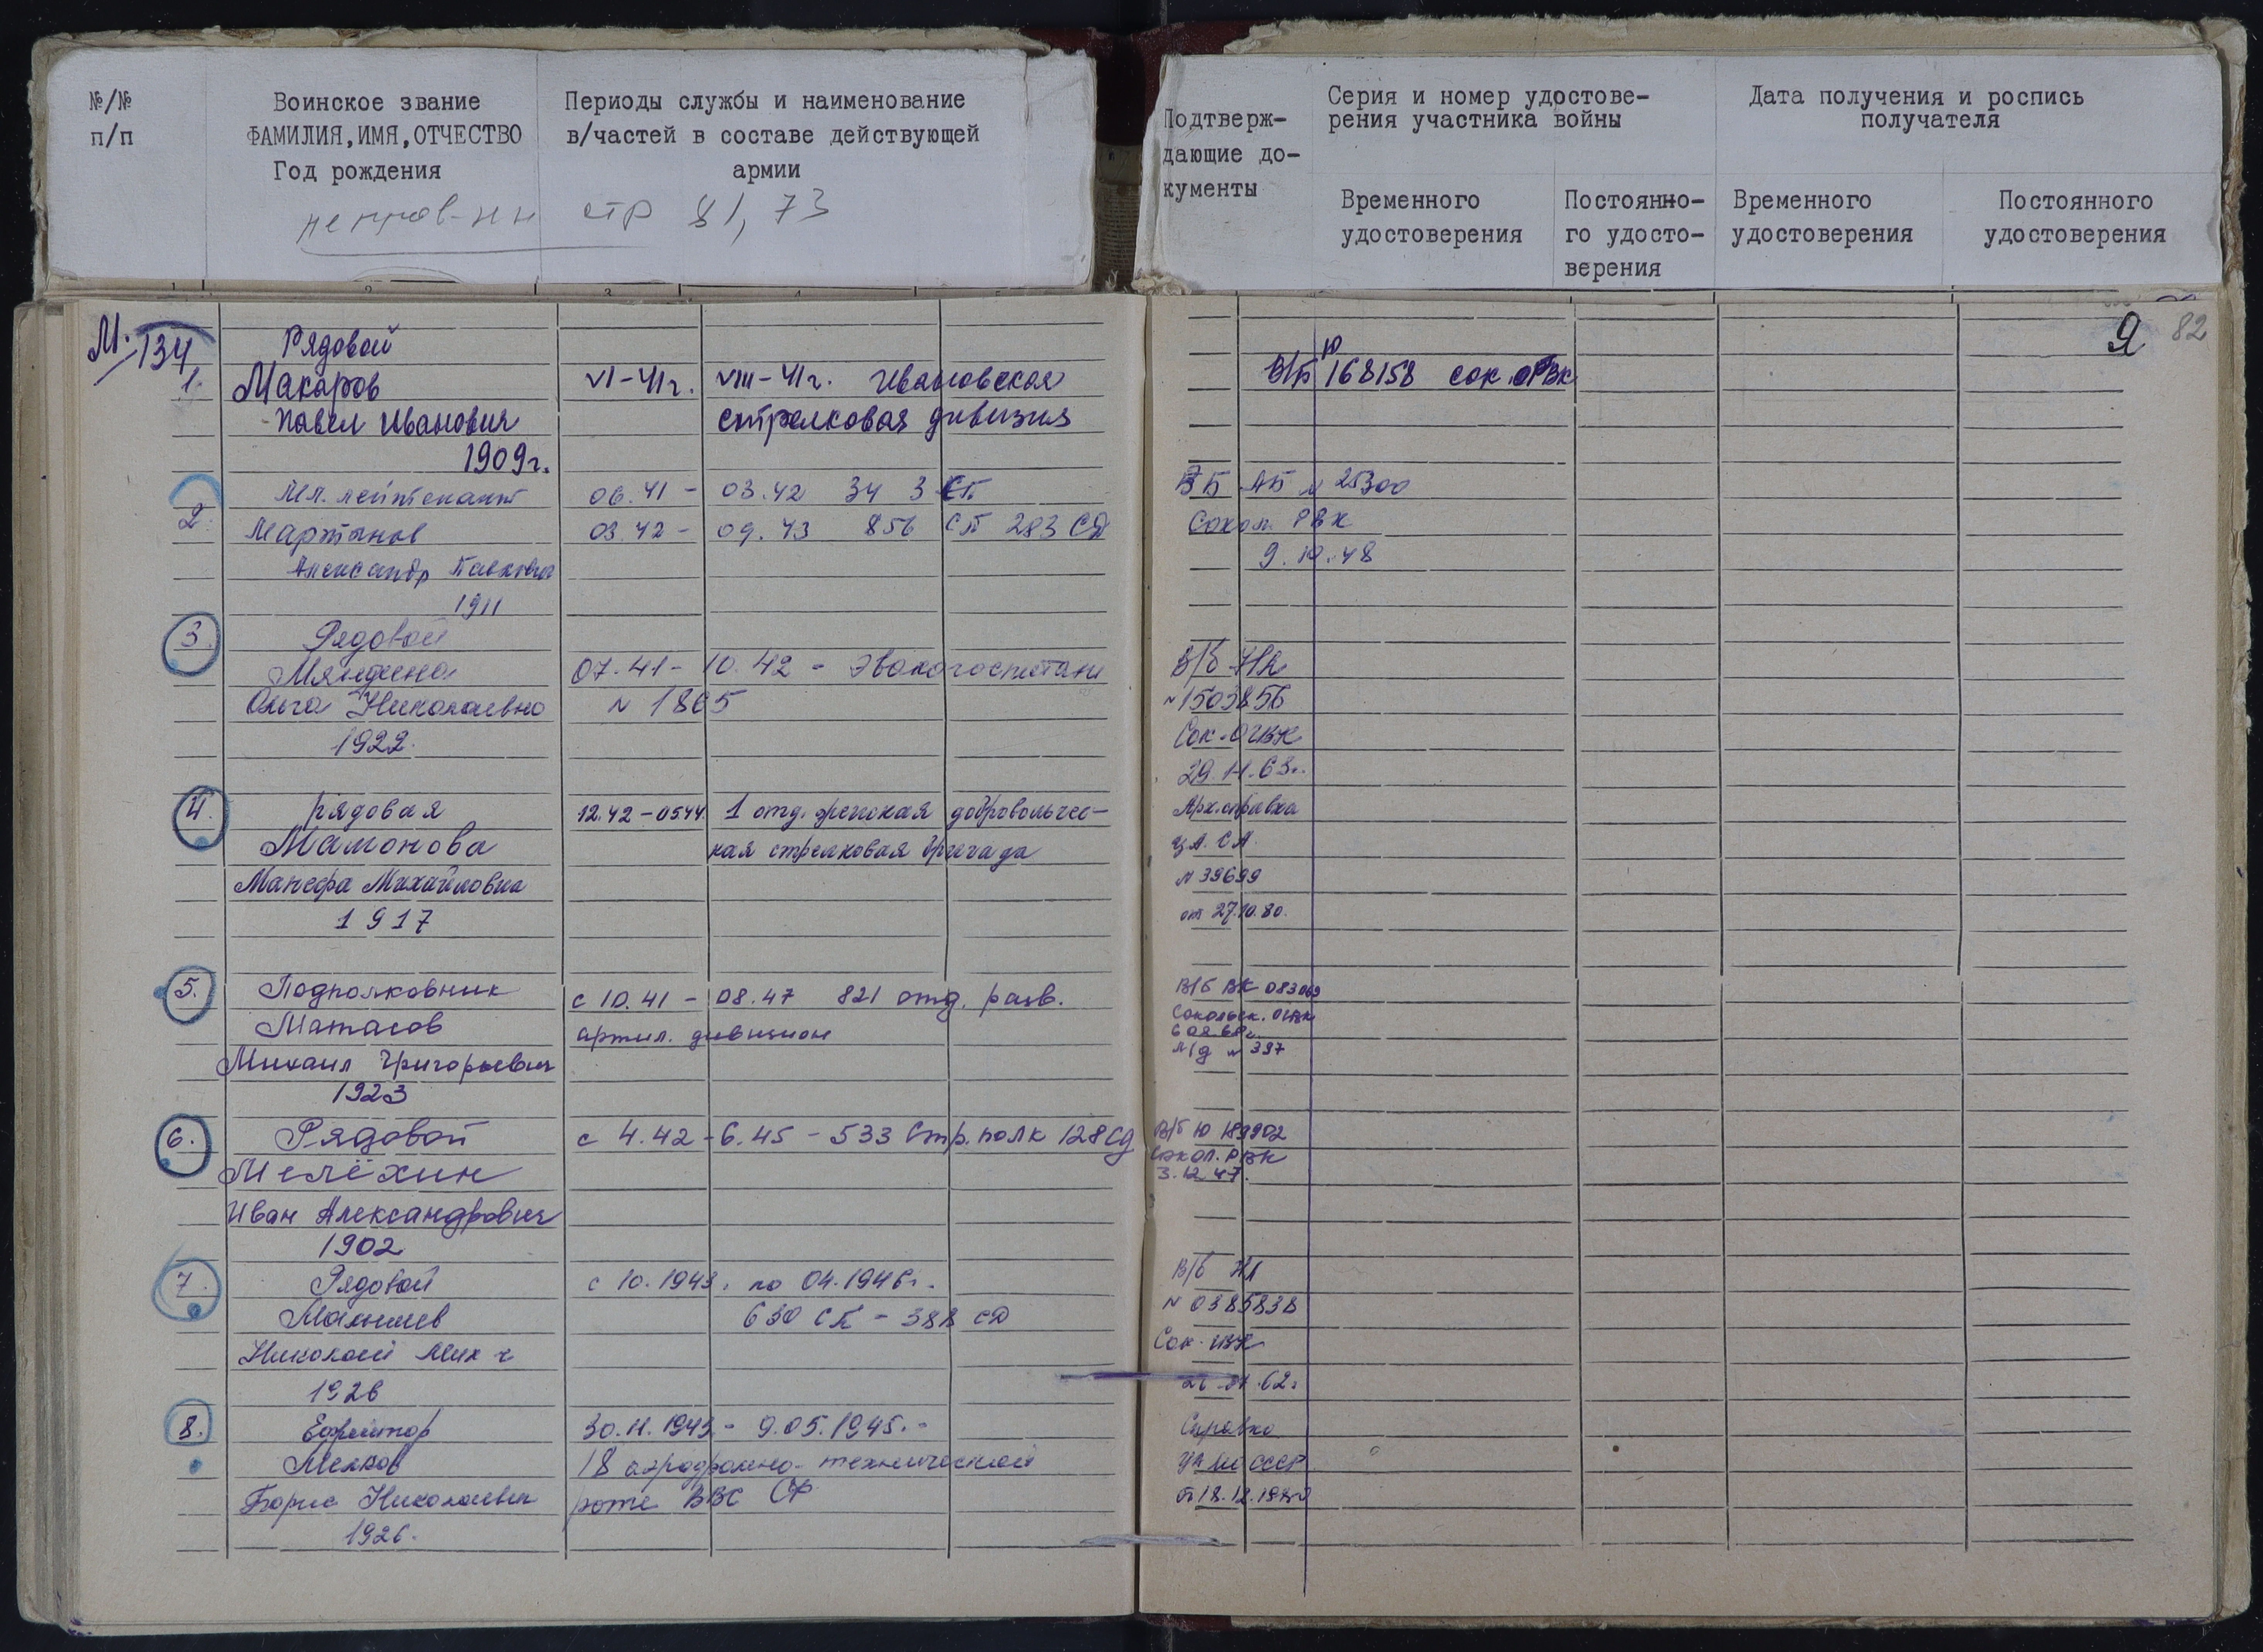 №/№
п/п
Воинское звание
ФАМИЛИЯ, ИМЯ, ОТЧЕСТВО
Год рождения
Периоды службы и наименование
в/частей в составе действующей
армии
стр 81, 73
Подтверж-
дающие до-
кументы
Серия и номер удостове-
рения участника войны
Временного
удостоверения
Постоянно-
го удосто-
верения
Дата получения и роспись
получателя
Временного
удостоверения
Постоянного
удостоверения
82
М.
134
1. Рядовой
Макаров
Павел Иванович
1909г.
VI-41г. VIII-41г. Ивановская
стрелковая дивизия
В/Б Ю 168158 сок. ОРВК
2. Мл. лейтенант
Мартынов
Александр Павлович
1911
06.41 - 03.42 34 З СП
03.42 - 09.43 856 СП 283 СД
ВБ АБ № 25300
Сокол. РВК
9.10.48
3. Рядовой
Мяндина
Ольга Николаевна
1922.
07.41 - 10.42 - Эвакогоспитали
№ 1865
В/б НК
№1503856
Сок. ОГВК
4. рядовая
Мамонова
Манефа Михайловна
1917
12.42-05.44. 1 отд. женская добровольчес-
кая стрелковая бригада
Арх. справка
ЦА. СА.
№ 39699
от 27.10.80.
5. Подполковник
Матасов
Михаил Григорьевич
1923
с 10.41 - 08.47 821 отд. разв.
артил. дивизион
В/б ВК 083069
Сокольск. ОГВК
л/д № 397
6. Рядовой
Мелёхин
Иван Александрович
1902
с 4.42 - 6.45 - 533 Стр. полк 128 сд
В/б Ю 189902
Сокол. РВК
3.12.47.
7. Рядовой
Малышев
Николай Мих-ч
1926
с 10.1943г. по 04.1946г.
630 СП - 388 СД
В/б НЛ
№ 0385838
Сок. ГВК
8. Ефрейтор
Мелков
Борис Николаевич
1926.
30.11.1943 - 9.05.1945. -
18 аэродромно-технической
роте ВВС СФ
Справка
ЦА МО СССР